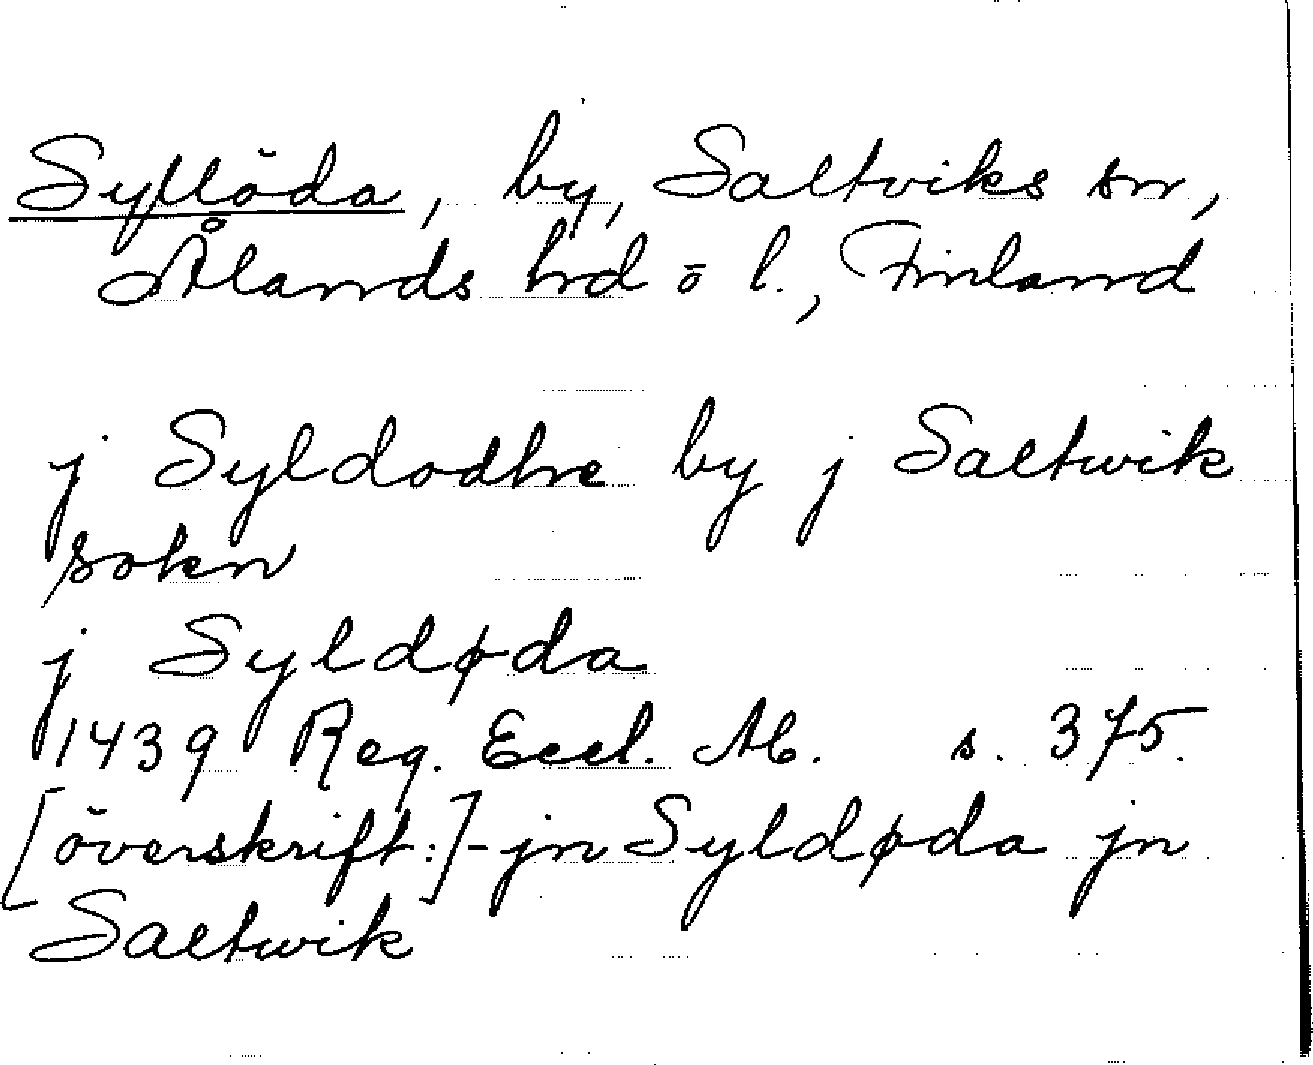 Syllöda, by, Saltviks sn,
Ålands hd o l., Finland
j Syldodhe by j Saltwik
sokn
j Syldøda
1439 Reg. Eccl. Ab. s. 375.
[överskrift:] - jn Syldøda jn
Saltwik